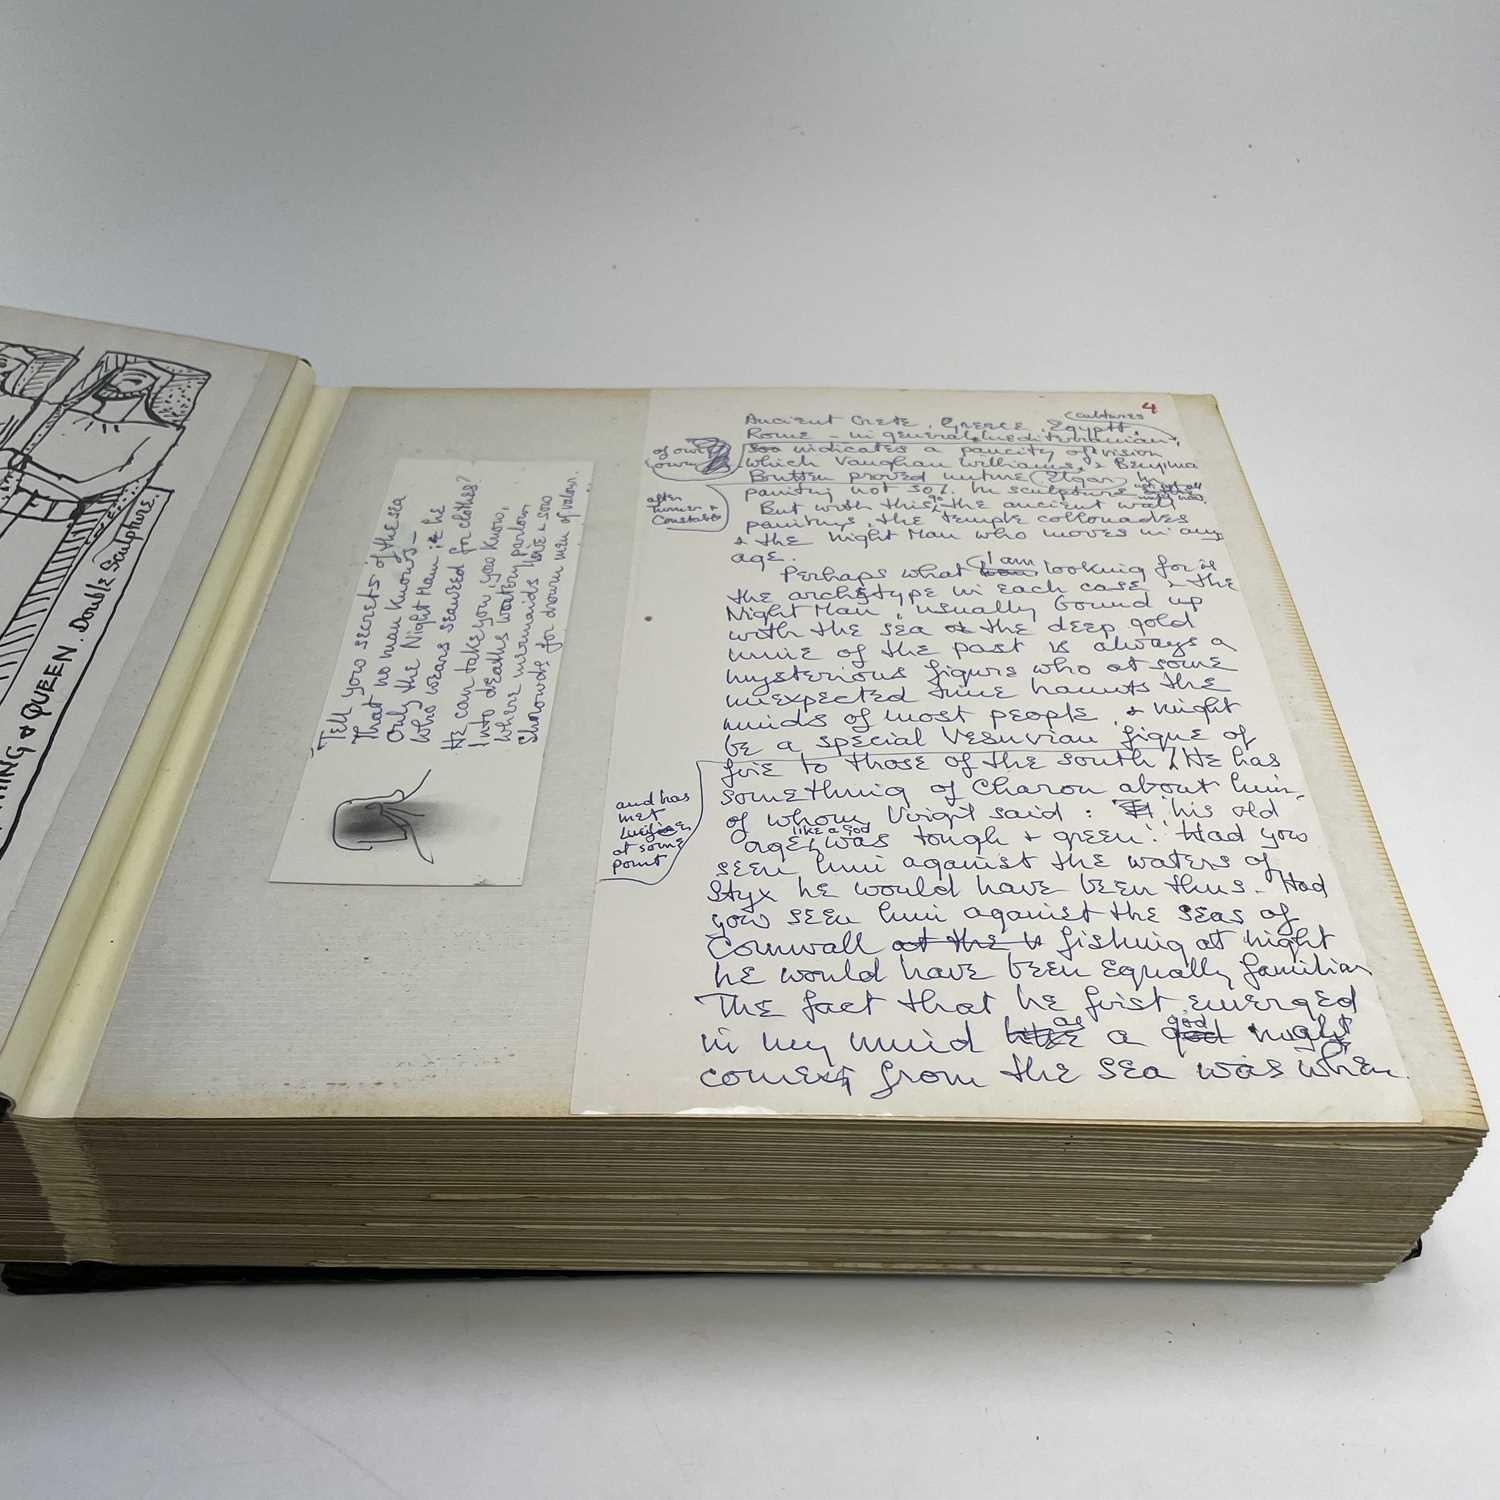 KING & QUEEN. Double Sculpture.
Tell you secrets of the sea
That no man knows –
Only the Night Man he
Who wears seaweed for clothes?
He can take you, you know,
Into deaths watery parlour
Where mermaids live & sow
Shrowds for drown men of valour.
4
Ancient Crete, Greece, Egypt,
(cultures
Rome – in general mediterranian,
indicates a paucity of vision
which Vaughan Williams, & Benjima
Britten proved untrue (Elgar) In
painting not so. In sculpture
of our
own
after
Turner &
Constable
But with this, the ancient wall
paintings, the temple collonades
& the Night Man who moves in any
age.
Perhaps what I am looking for is
the archetype in each case, & the
Night Man, usually bound up
with the sea or the deep gold
mine of the past is always a
mysterious figure who at some
unexpected time haunts the
minds of most people, & might
be a special Vesuvian figure of
fire to those of the south. He has
something of Charon about him,
of whom Virgil said: his old
age, like a god was tough & green! Had you
and has
met
Lucifer
at some
point
seen him against the waters of
Styx he would have been thus. Had
you seen him against the seas of
Cornwall at the fishing at night
he would have been equally familiar
The fact that he first emerged
in my mind as a god night
from the sea was when